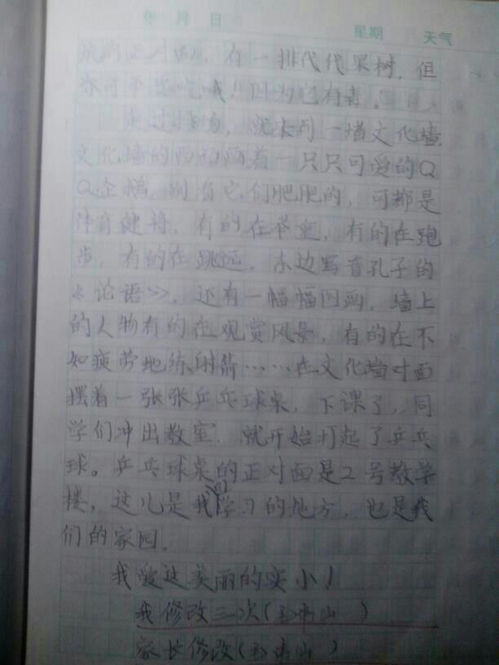 年 月 日 星期 天气
有一排代代果树，但
可不 吃哦！因为它有毒。
走过 一墙文化墙
文化墙的西边画着一只只可爱的Q
Q企鹅，别看它们肥肥的，可都是
体育健将，有的在 ，有的在跑
步，有的在跳远。东边写着孔子的
《论语》，还有一幅幅图画，墙上
的人物有的在观赏风景，有的在不
知疲劳地练射箭……在文化墙对面
摆着一张张乒乓球桌，下课了，同
学们冲出教室，就开始打起了乒乓
球。乒乓球桌的正对面是2号教学
楼，这儿是我们学习的地方，也是我
们的家园。
我爱这美丽的实小！
我修改三次（ 山）
家长修改（ 山）